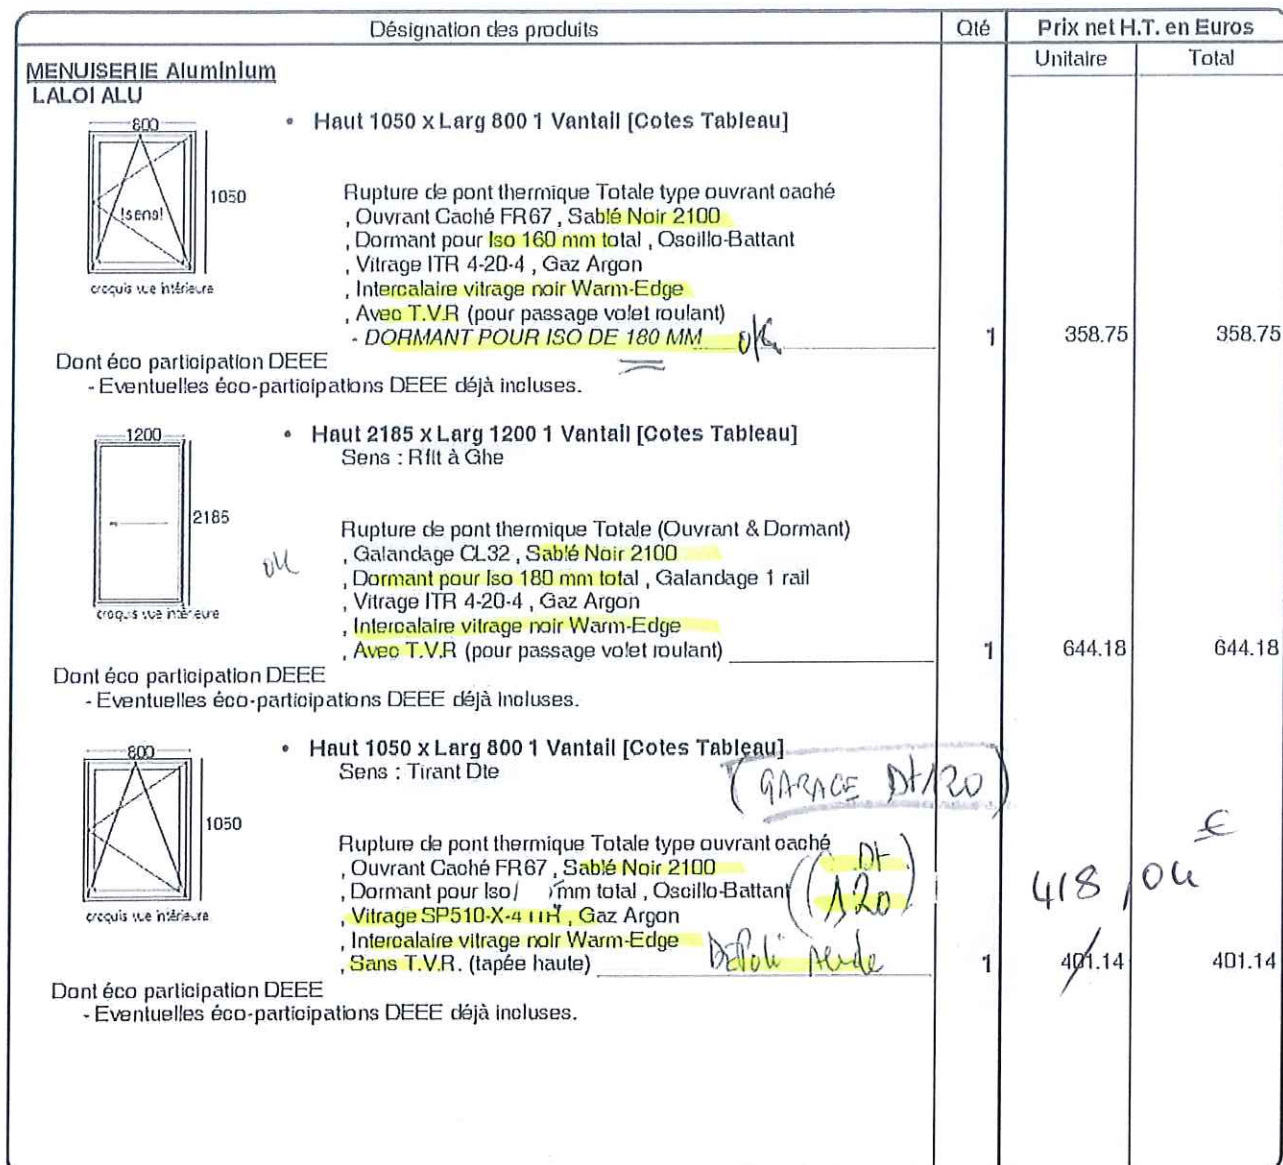 Désignation des produits
Qté
Prix net H.T. en Euros
Unitaire
Total
MENUISERIE Aluminium
LALOI ALU
800
1050
!sens!
croquis vue intérieure
• Haut 1050 x Larg 800 1 Vantail [Cotes Tableau]
Rupture de pont thermique Totale type ouvrant caché
, Ouvrant Caché FR67 , Sablé Noir 2100
, Dormant pour Iso 160 mm total , Oscillo-Battant
, Vitrage ITR 4-20-4 , Gaz Argon
, Intercalaire vitrage noir Warm-Edge
, Avec T.V.R (pour passage volet roulant)
- DORMANT POUR ISO DE 180 MM ok
1
358.75
358.75
Dont éco participation DEEE
- Eventuelles éco-participations DEEE déjà incluses.
1200
2185
croquis vue intérieure
• Haut 2185 x Larg 1200 1 Vantail [Cotes Tableau]
Sens : Rflt à Ghe
ok
Rupture de pont thermique Totale (Ouvrant & Dormant)
, Galandage CL32 , Sablé Noir 2100
, Dormant pour Iso 180 mm total , Galandage 1 rail
, Vitrage ITR 4-20-4 , Gaz Argon
, Intercalaire vitrage noir Warm-Edge
, Avec T.V.R (pour passage volet roulant)
1
644.18
644.18
Dont éco participation DEEE
- Eventuelles éco-participations DEEE déjà incluses.
800
1050
croquis vue intérieure
• Haut 1050 x Larg 800 1 Vantail [Cotes Tableau]
Sens : Tirant Dte
(GARAGE Dt 120)
Rupture de pont thermique Totale type ouvrant caché
, Ouvrant Caché FR67 , Sablé Noir 2100
, Dormant pour Iso mm total , Oscillo-Battant
(Dt 120)
, Vitrage SP510-X-4 ITR , Gaz Argon
, Intercalaire vitrage noir Warm-Edge
, Sans T.V.R. (tapée haute)
DEPOLI
418,04 €
1
401.14
401.14
Dont éco participation DEEE
- Eventuelles éco-participations DEEE déjà incluses.